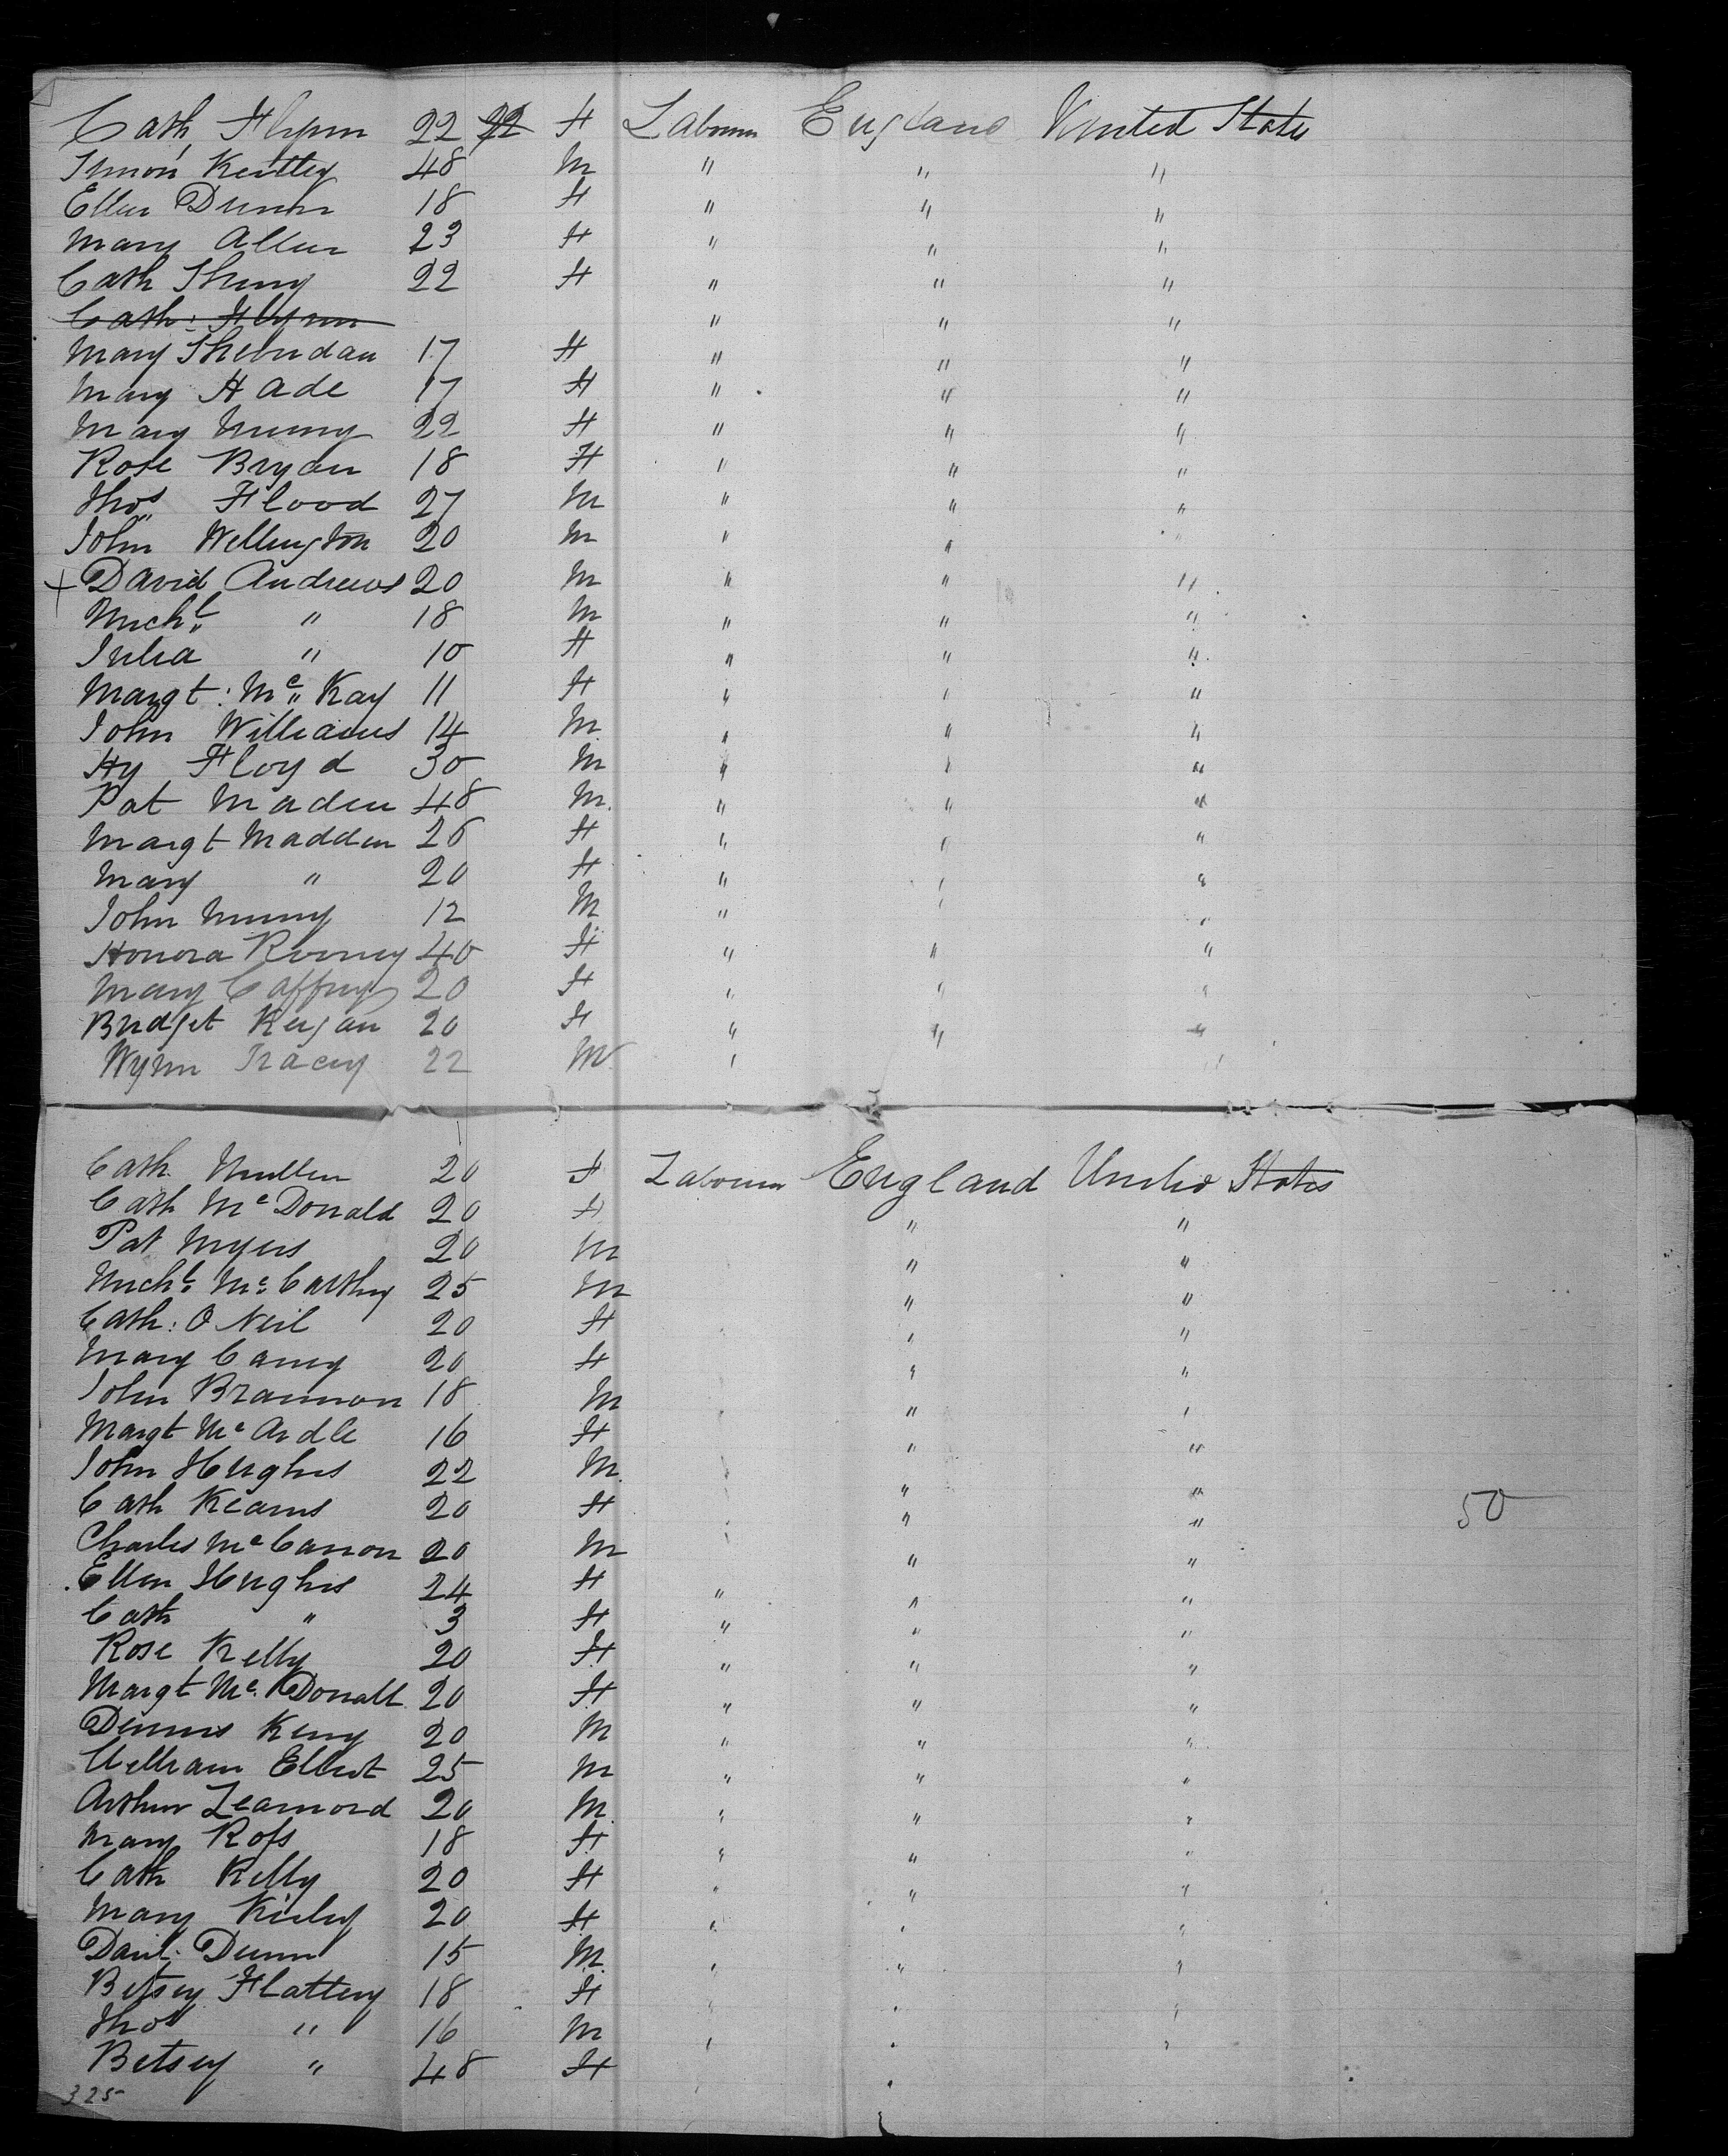 Cath Flynn 22 22 F Labourer England United States
Simon Keitley 48 M " " "
Ellen Dunn 18 F " " "
Mary Allen 23 F " " "
Cath 22 F " " "
Cath: Flynn " " "
Mary Sheridan 17 F " " "
Mary Hade 17 F " " "
Mary Murray 22 F " " "
Rose Bryan 18 F " " "
Thos Flood 27 M " " "
John Wellington 20 M " " "
+ David Andrews 20 M " " "
Michl " 18 M " " "
Julia " 10 F " " "
Margt: Mc Kay 11 F " " "
John Williams 14 M " " "
Hy Floyd 30 M " " "
Pat Maden 48 M. " " "
Margt Madden 26 F " " "
Mary " 20 F " " "
John Murray 12 M " " "
Honora Rooney 40 F " " "
Mary Caffrey 20 F " " "
Bridget Kegan 20 F " " "
Wynn Tracey 22 M " "
Cath. Mullen 20 F Labourer England United States
Cath McDonald 20 F " "
Pat Myers 20 M " "
Michl McCarthy 25 M " "
Cath: O Neil 20 F " "
Mary Carney 20 F " "
John Brannon 18 M " "
Margt McArdle 16 F " "
John Hughes 22 M " "
Cath Kearns 20 F " " 50
Charles McCannon 20 M " "
Ellen Hughes 24 F " " "
Cath " 3 F " " "
Rose Kelly 20 F " " "
Margt Mc Donall 20 F " " "
Dennis Keny 20 M " " "
William Elliot 25 M " " "
Arthur Leamond 20 M " " "
Mary Rofs 18 F " " "
Cath Kelly 20 F " " "
Mary Kirley 20 F " " "
Danl. Dunn 15 M " " "
Betsey Flattery 18 F " " "
Thos " 16 M " " "
Betsey " 48 F
325